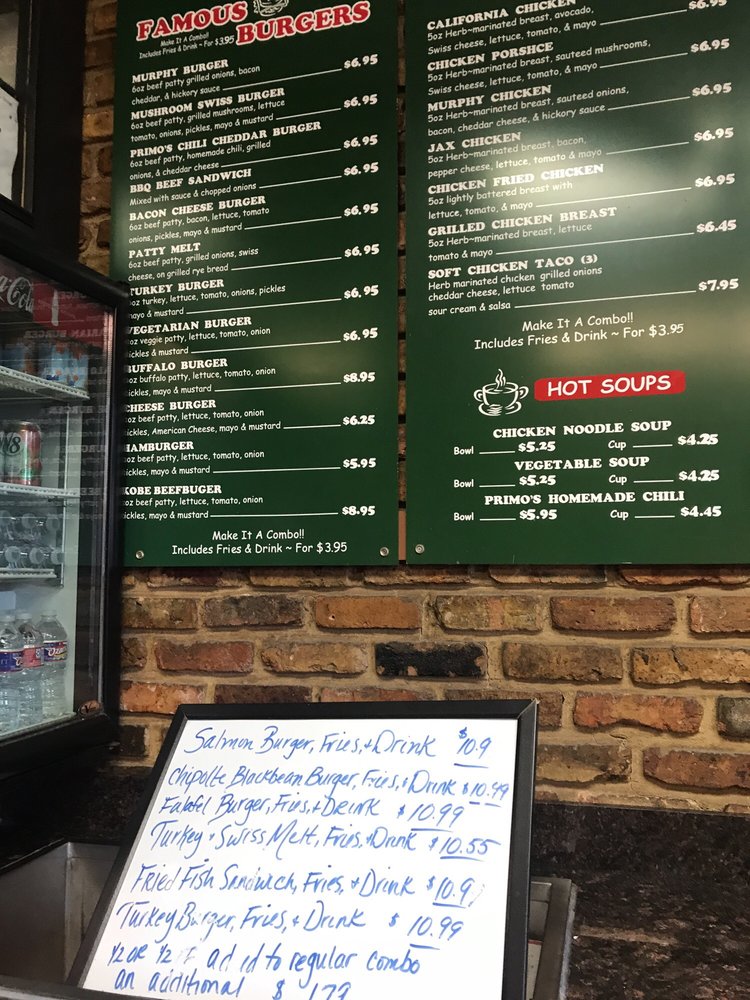 FAMOUS BURGERS
Make It A Combo!!
Includes Fries & Drink ~ For $3.95
MURPHY BURGER
6oz beef patty grilled onions, bacon
cheddar, & hickory sauce $6.95
MUSHROOM SWISS BURGER
6oz beef patty, grilled mushrooms, lettuce
tomato, onions, pickles, mayo & mustard $6.95
PRIMO'S CHILI CHEDDAR BURGER
6oz beef patty, homemade chili, grilled
onions, & cheddar cheese $6.95
BBQ BEEF SANDWICH
Mixed with sauce & chopped onions $6.95
BACON CHEESE BURGER
6oz beef patty, bacon, lettuce, tomato
onions, pickles, mayo & mustard $6.95
PATTY MELT
6oz beef patty, grilled onions, swiss
cheese, on grilled rye bread $6.95
TURKEY BURGER
6oz turkey, lettuce, tomato, onions, pickles
mayo & mustard $6.95
VEGETARIAN BURGER
6oz veggie patty, lettuce, tomato, onion
pickles & mustard $6.95
BUFFALO BURGER
6oz buffalo patty, lettuce, tomato, onion
pickles, mayo & mustard $8.95
CHEESE BURGER
6oz beef patty, lettuce, tomato, onion
pickles, American Cheese, mayo & mustard $6.25
HAMBURGER
6oz beef patty, lettuce, tomato, onion
pickles, mayo & mustard $5.95
KOBE BEEFBUGER
6oz beef patty, lettuce, tomato, onion
pickles, mayo & mustard $8.95
Make It A Combo!!
Includes Fries & Drink ~ For $3.95
CALIFORNIA CHICKEN
5oz Herb~marinated breast, avocado,
Swiss cheese, lettuce, tomato, & mayo $6.95
CHICKEN PORSHCE
5oz Herb~marinated breast, sauteed mushrooms,
Swiss cheese, lettuce, tomato, & mayo $6.95
MURPHY CHICKEN
5oz Herb~marinated breast, sauteed onions,
bacon, cheddar cheese, & hickory sauce $6.95
JAX CHICKEN
5oz Herb~marinated breast, bacon,
pepper cheese, lettuce, tomato & mayo $6.95
CHICKEN FRIED CHICKEN
5oz lightly battered breast with
lettuce, tomato, & mayo $6.95
GRILLED CHICKEN BREAST
5oz Herb~marinated breast, lettuce
tomato & mayo $6.45
SOFT CHICKEN TACO (3)
Herb marinated chicken grilled onions
cheddar cheese, lettuce tomato
sour cream & salsa $7.95
Make It A Combo!!
Includes Fries & Drink ~ For $3.95
HOT SOUPS
CHICKEN NOODLE SOUP
Bowl $5.25 Cup $4.25
VEGETABLE SOUP
Bowl $5.25 Cup $4.25
PRIMO'S HOMEMADE CHILI
Bowl $5.95 Cup $4.45
Coca-Cola
V8
Ozarka
Salmon Burger, Fries, + Drink $10.9
Chipolte Blackbean Burger, Fries, + Drink $10.99
Falafel Burger, Fries, + Drink $10.99
Turkey + Swiss Melt, Fries, + Drink $10.55
Fried Fish Sandwich, Fries, + Drink $10.9
Turkey Burger, Fries, + Drink $10.99
1/2 or 1/2 add to regular combo
an additional $1.79